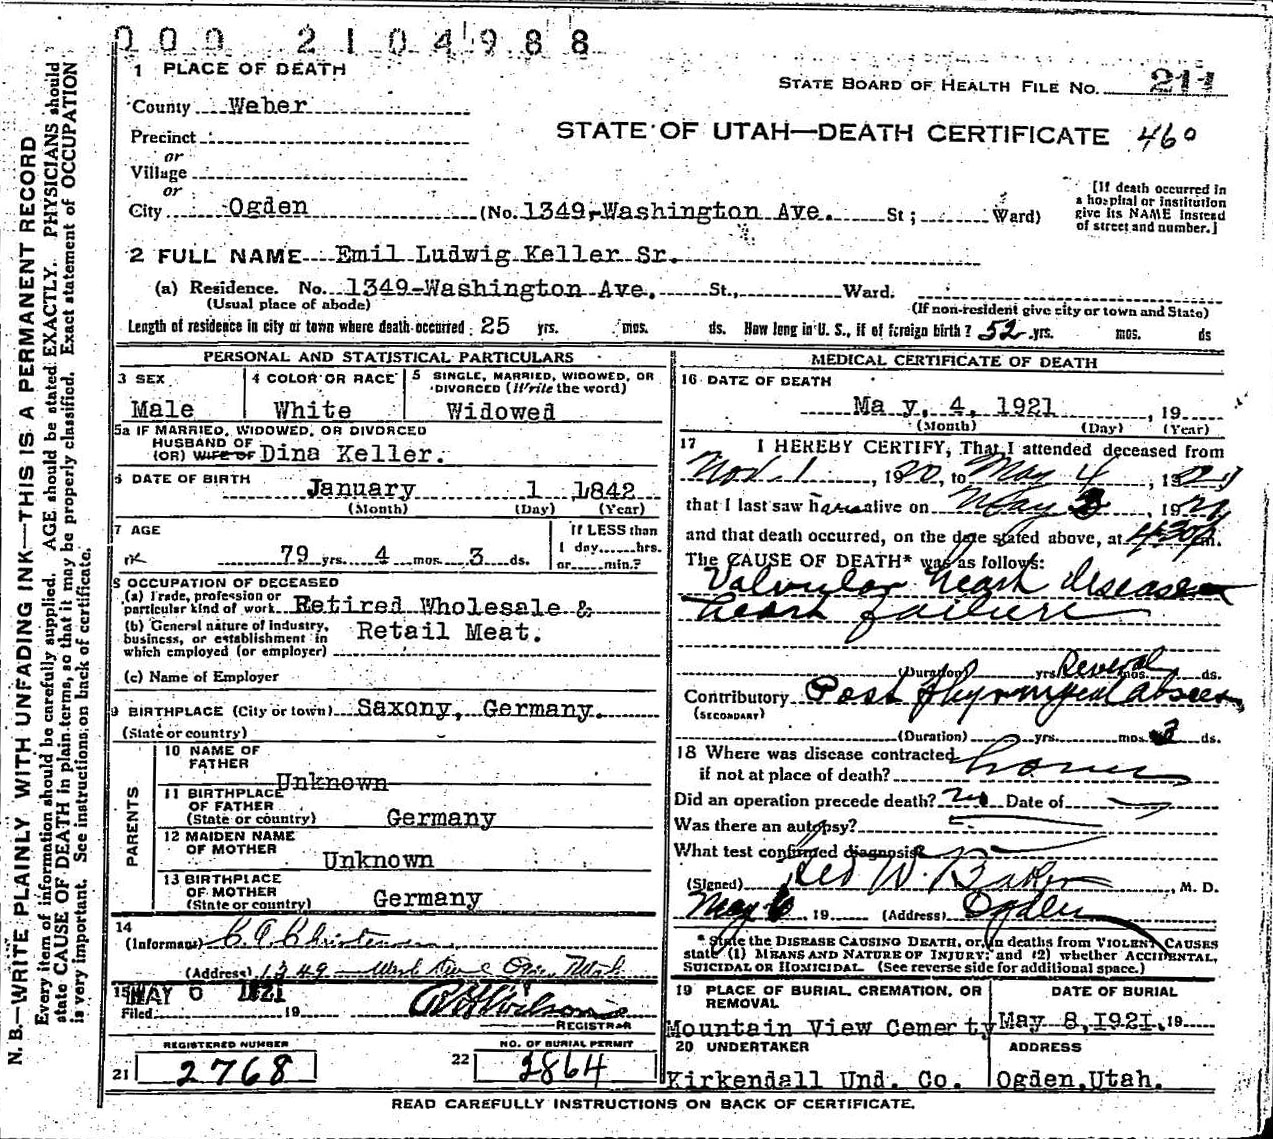 000 2104988
1 PLACE OF DEATH
STATE BOARD OF HEALTH FILE NO. 211
County Weber
STATE OF UTAH—DEATH CERTIFICATE 460
Precinct
or
Village
or
City Ogden (No. 1349-Washington Ave. St; Ward)
[If death occurred in
a hospital or institution
give its NAME instead
of street and number.]
2 FULL NAME Emil Ludwig Keller Sr.
(a) Residence. No. 1349-Washington Ave. St., Ward.
(Usual place of abode) (If non-resident give city or town and State)
Length of residence in city or town where death occurred 25 yrs. mos. ds. How long in U. S., if of foreign birth? 52 yrs. mos. ds
PERSONAL AND STATISTICAL PARTICULARS
3 SEX
Male
4 COLOR OR RACE
White
5 SINGLE, MARRIED, WIDOWED, OR
DIVORCED (Write the word)
Widowed
5a IF MARRIED, WIDOWED, OR DIVORCED
HUSBAND OF
(OR) WIFE OF Dina Keller.
6 DATE OF BIRTH
January 1 1842
(Month) (Day) (Year)
7 AGE
79 yrs. 4 mos. 3 ds.
If LESS than
1 day......hrs.
or......min.?
8 OCCUPATION OF DECEASED
(a) Trade, profession or
particular kind of work Retired Wholesale &
(b) General nature of industry,
business, or establishment in Retail Meat.
which employed (or employer)
(c) Name of Employer
9 BIRTHPLACE (City or town) Saxony, Germany.
(State or country)
PARENTS
10 NAME OF
FATHER
Unknown
11 BIRTHPLACE
OF FATHER
(State or country) Germany
12 MAIDEN NAME
OF MOTHER
Unknown
13 BIRTHPLACE
OF MOTHER
(State or country) Germany
14
(Informant) C. A. Christensen.
(Address) 1349 - Wash Ave Ogden, Utah
15 MAY 6 1921
Filed 19
REGISTRAR
REGISTERED NUMBER
21 2768
NO. OF BURIAL PERMIT
22 2864
MEDICAL CERTIFICATE OF DEATH
16 DATE OF DEATH
May, 4, 1921, 19
(Month) (Day) (Year)
17 I HEREBY CERTIFY, That I attended deceased from
Nov. 1, 1920, to May 4, 1921
that I last saw h alive on May 3, 1921
and that death occurred, on the date stated above, at 430p m.
The CAUSE OF DEATH* was as follows:
Valvular heart disease
heart failure
(Duration) yrs. Several mos. ds.
Contributory Post Pharyngeal abscess
(SECONDARY)
(Duration) yrs. mos. 3 ds.
18 Where was disease contracted
if not at place of death? home
Did an operation precede death? no Date of
Was there an autopsy?
What test confirmed diagnosis?
(Signed) Geo W. Baker, M. D.
May 6 19 (Address) Ogden
* State the DISEASE CAUSING DEATH, or, in deaths from VIOLENT CAUSES
state (1) MEANS AND NATURE OF INJURY; and (2) whether ACCIDENTAL,
SUICIDAL OR HOMICIDAL. (See reverse side for additional space.)
19 PLACE OF BURIAL, CREMATION, OR
REMOVAL
Mountain View Cemerty
DATE OF BURIAL
May 8,1921. 19
20 UNDERTAKER
Kirkendall Und. Co.
ADDRESS
Ogden,Utah.
READ CAREFULLY INSTRUCTIONS ON BACK OF CERTIFICATE.
N. B.—WRITE PLAINLY WITH UNFADING INK—THIS IS A PERMANENT RECORD
Every item of information should be carefully supplied. AGE should be stated EXACTLY. PHYSICIANS should
state CAUSE OF DEATH in plain terms, so that it may be properly classified. Exact statement of OCCUPATION
is very important. See instructions on back of certificate.